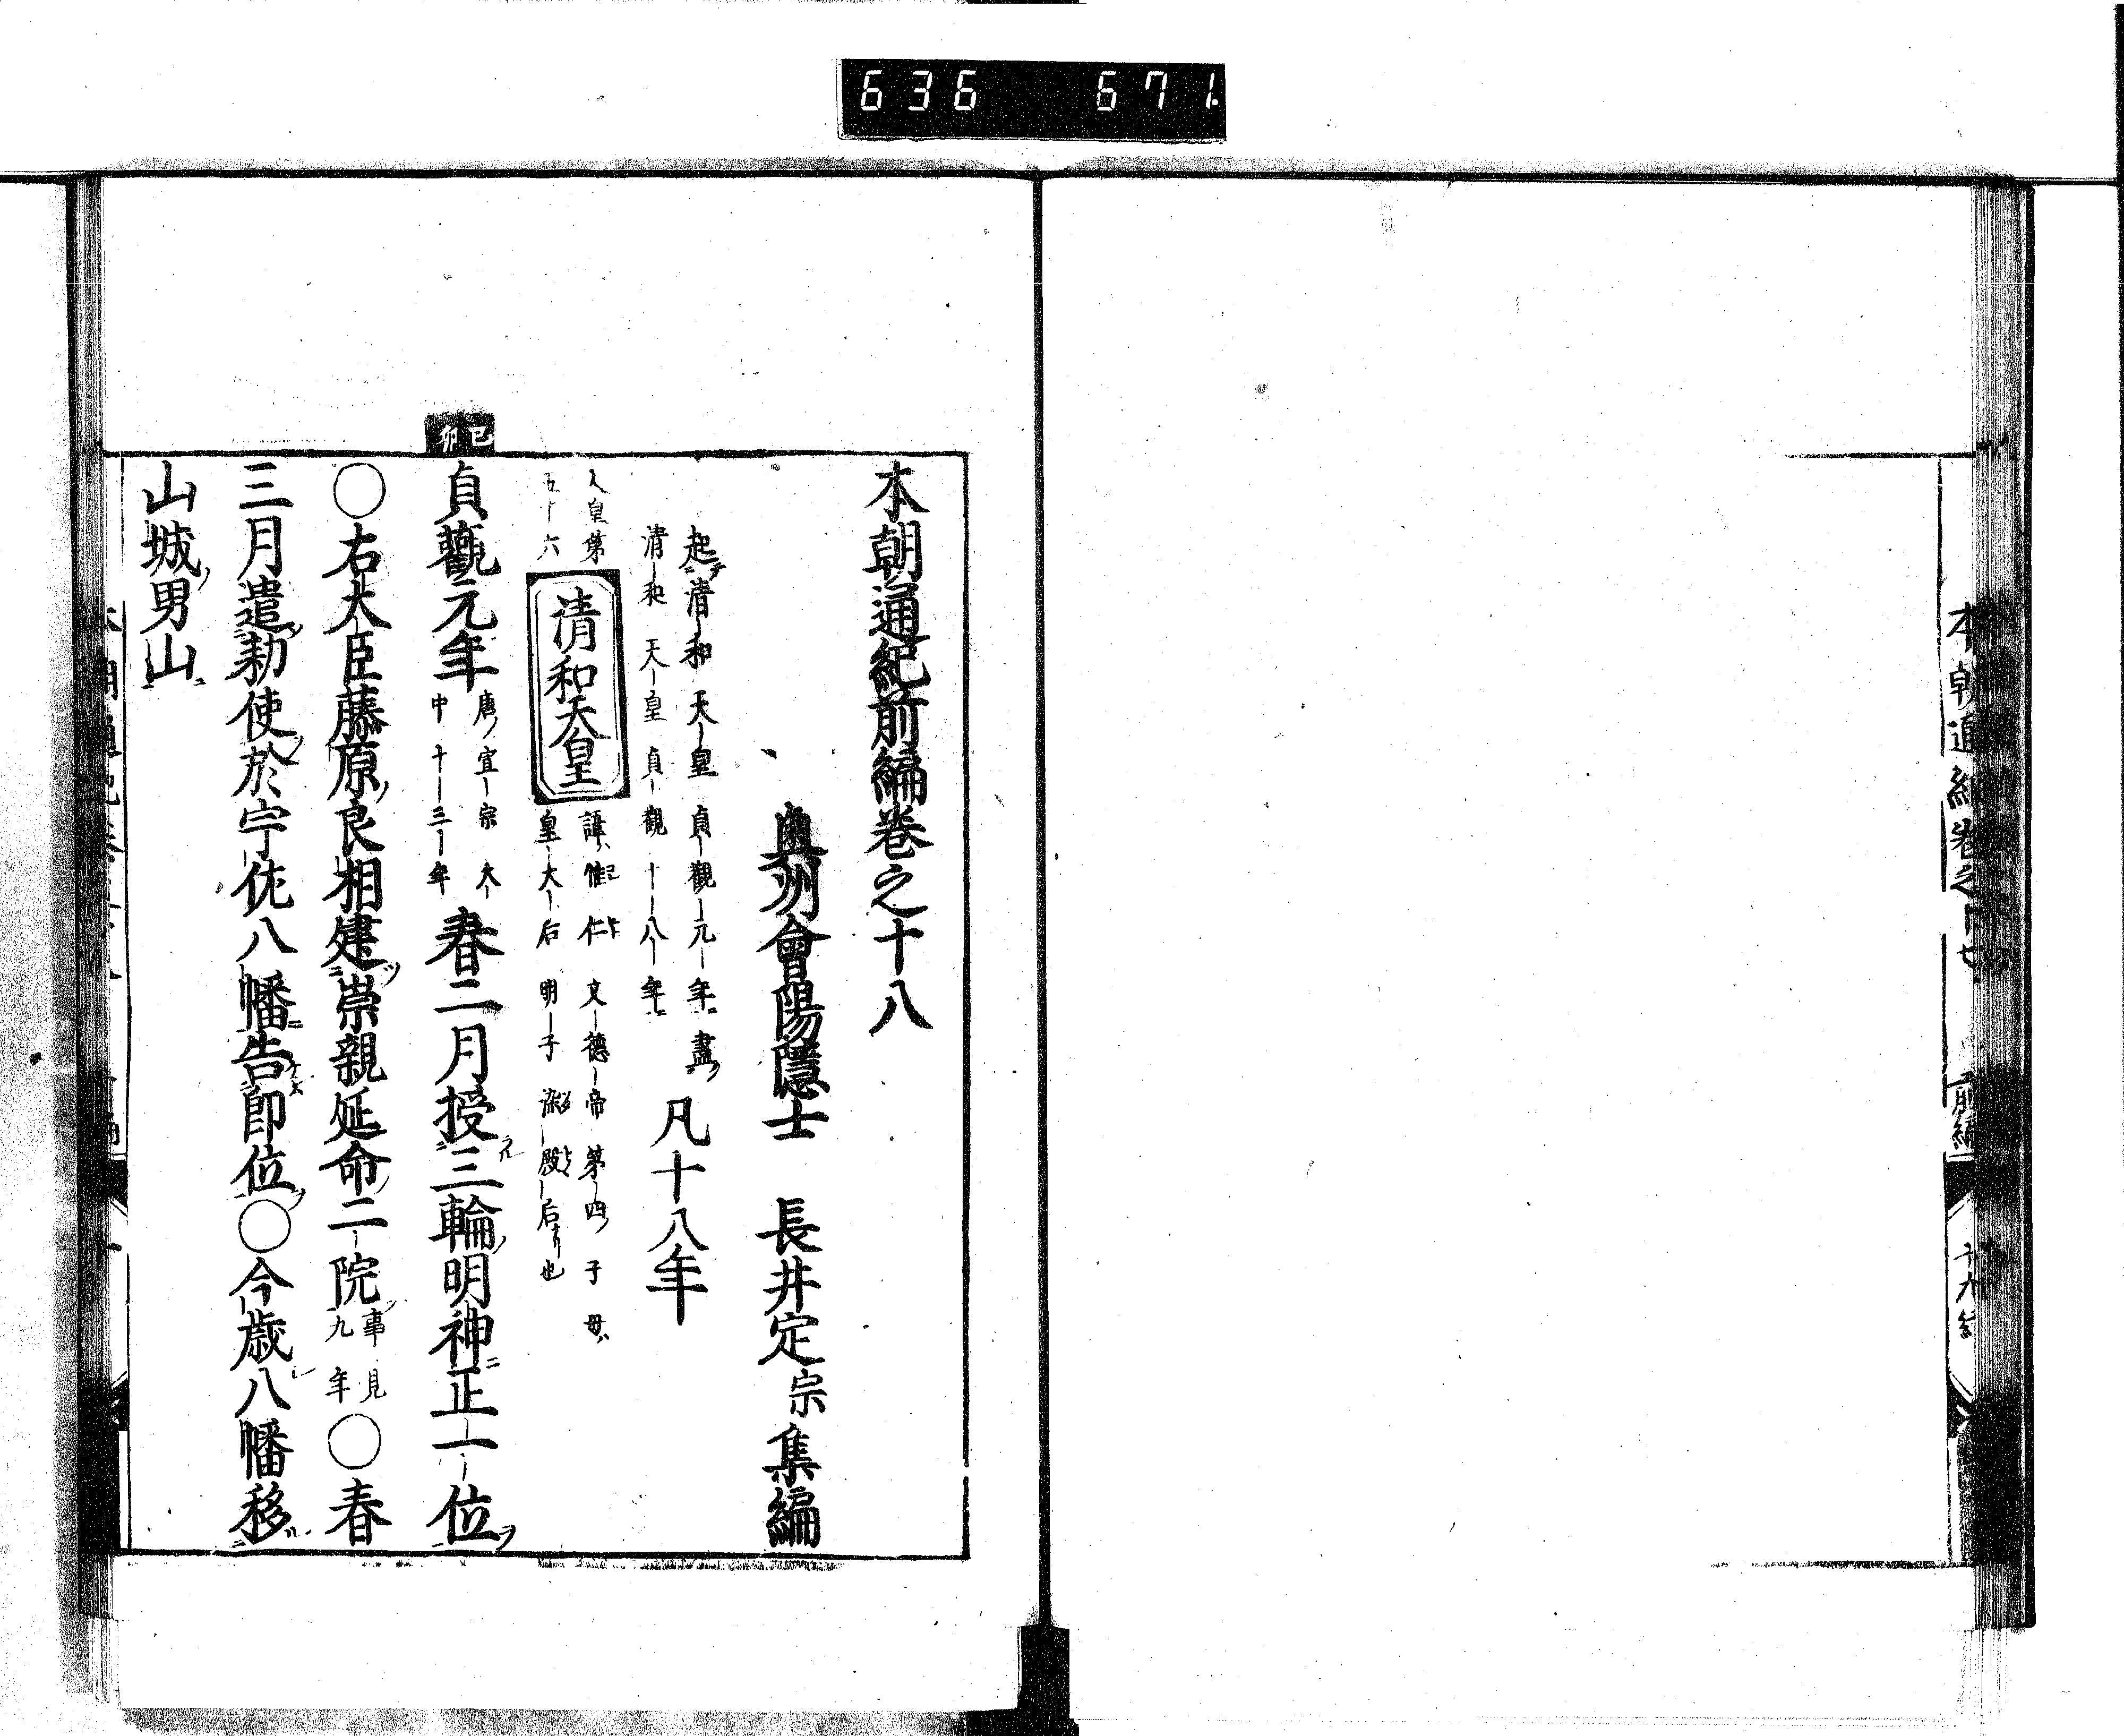 636 671
本朝通紀前編卷之十八
奥州會陽隱士 長井定宗集編
起清和天皇貞觀元年盡
清和天皇貞觀十八年 凡十八年
人皇第
五十六
清和天皇
諱惟仁文德帝第四子母
皇大后明子染殿后也
己卯
貞觀元年 唐宣宗大
中十三年 春二月授三輪明神正一位
〇右大臣藤原良相建崇親延命二院 事見
九年 〇春
三月遣勅使於宇佐八幡告即位〇今歳八幡移
山城男山